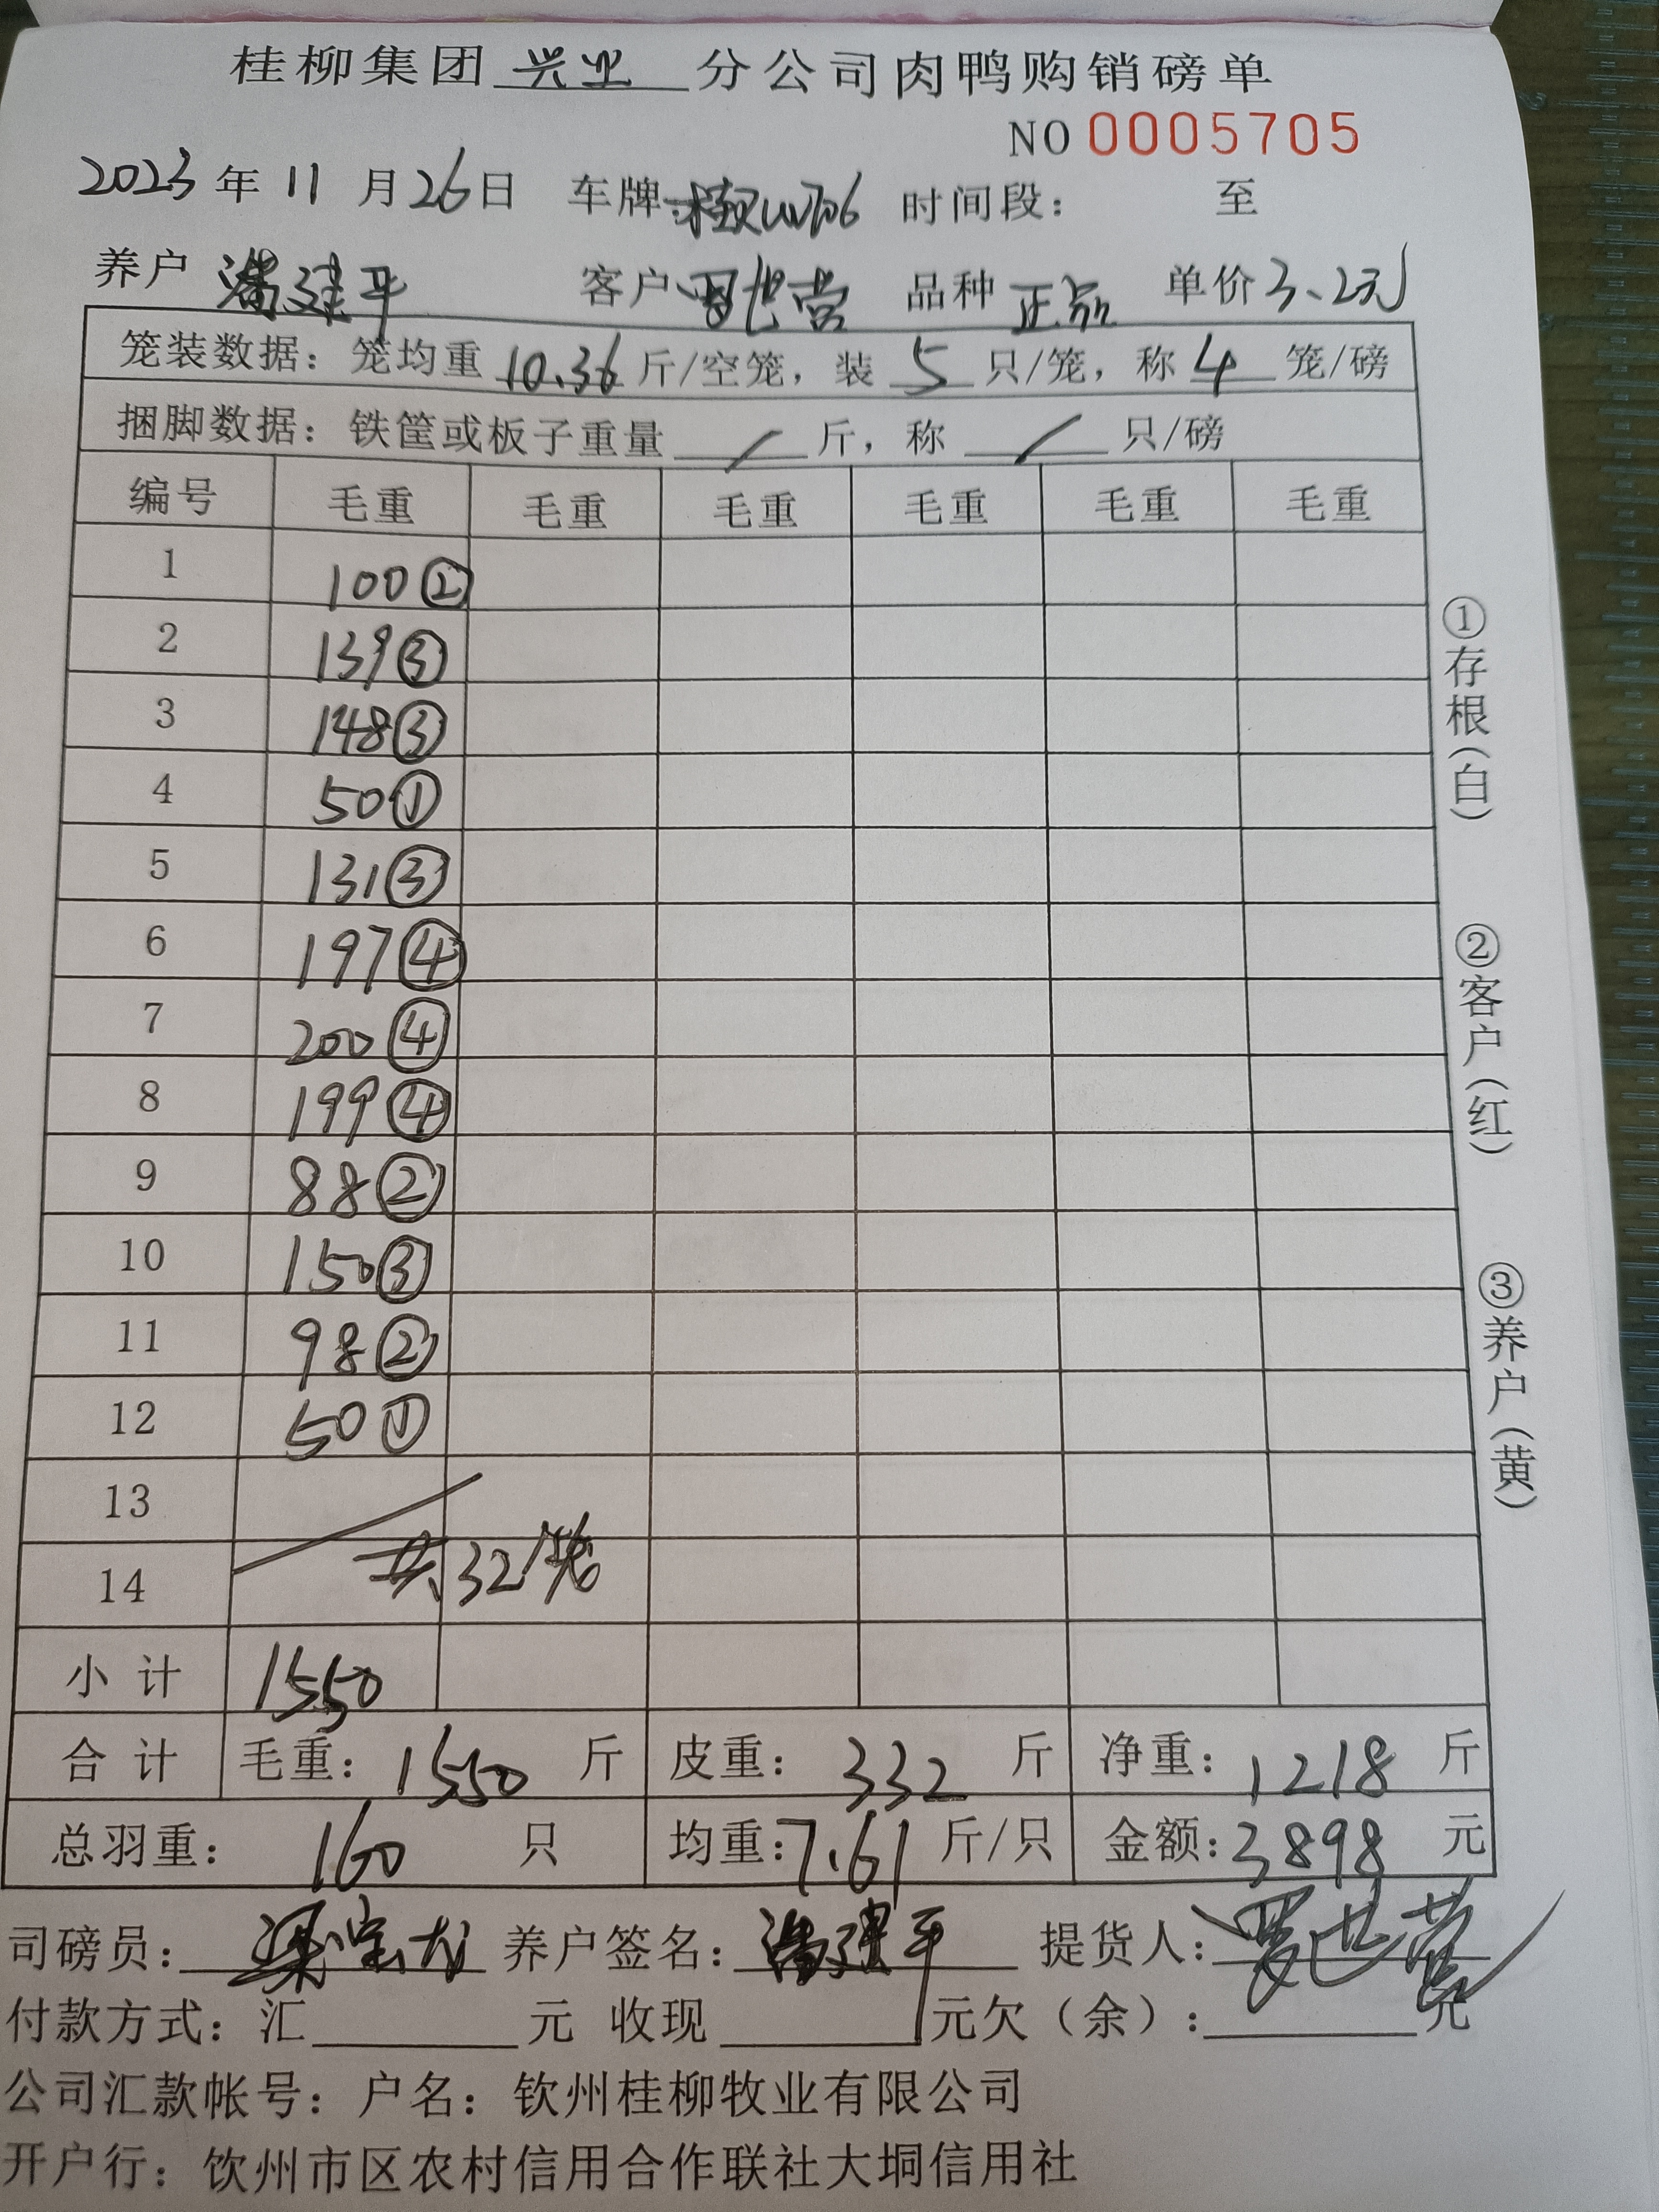 桂柳集团兴业分公司肉鸭购销磅单
NO 0005705
2023年11月26日 车牌: 时间段: 至
养户 潘建平 客户 品种 正品 单价 3.2元
笼装数据: 笼均重 10.36 斤/空笼, 装 5 只/笼, 称 4 笼/磅
捆脚数据: 铁筐或板子重量 / 斤, 称 / 只/磅
编号 毛重 毛重 毛重 毛重 毛重 毛重
1 100②
2 139③
3 148③
4 50①
5 131③
6 197④
7 200④
8 199④
9 88②
10 150③
11 98②
12 50①
13
14 共32笼
小计 1550
合计 毛重: 1550 斤 皮重: 332 斤 净重: 1218 斤
总羽重: 160 只 均重: 7.61 斤/只 金额: 3898 元
司磅员: 养户签名: 潘建平 提货人: 罗世营
付款方式: 汇 元 收现 元欠(余): 元
公司汇款帐号: 户名: 钦州桂柳牧业有限公司
开户行: 饮州市区农村信用合作联社大垌信用社
①存根(白)
②客户(红)
③养户(黄)